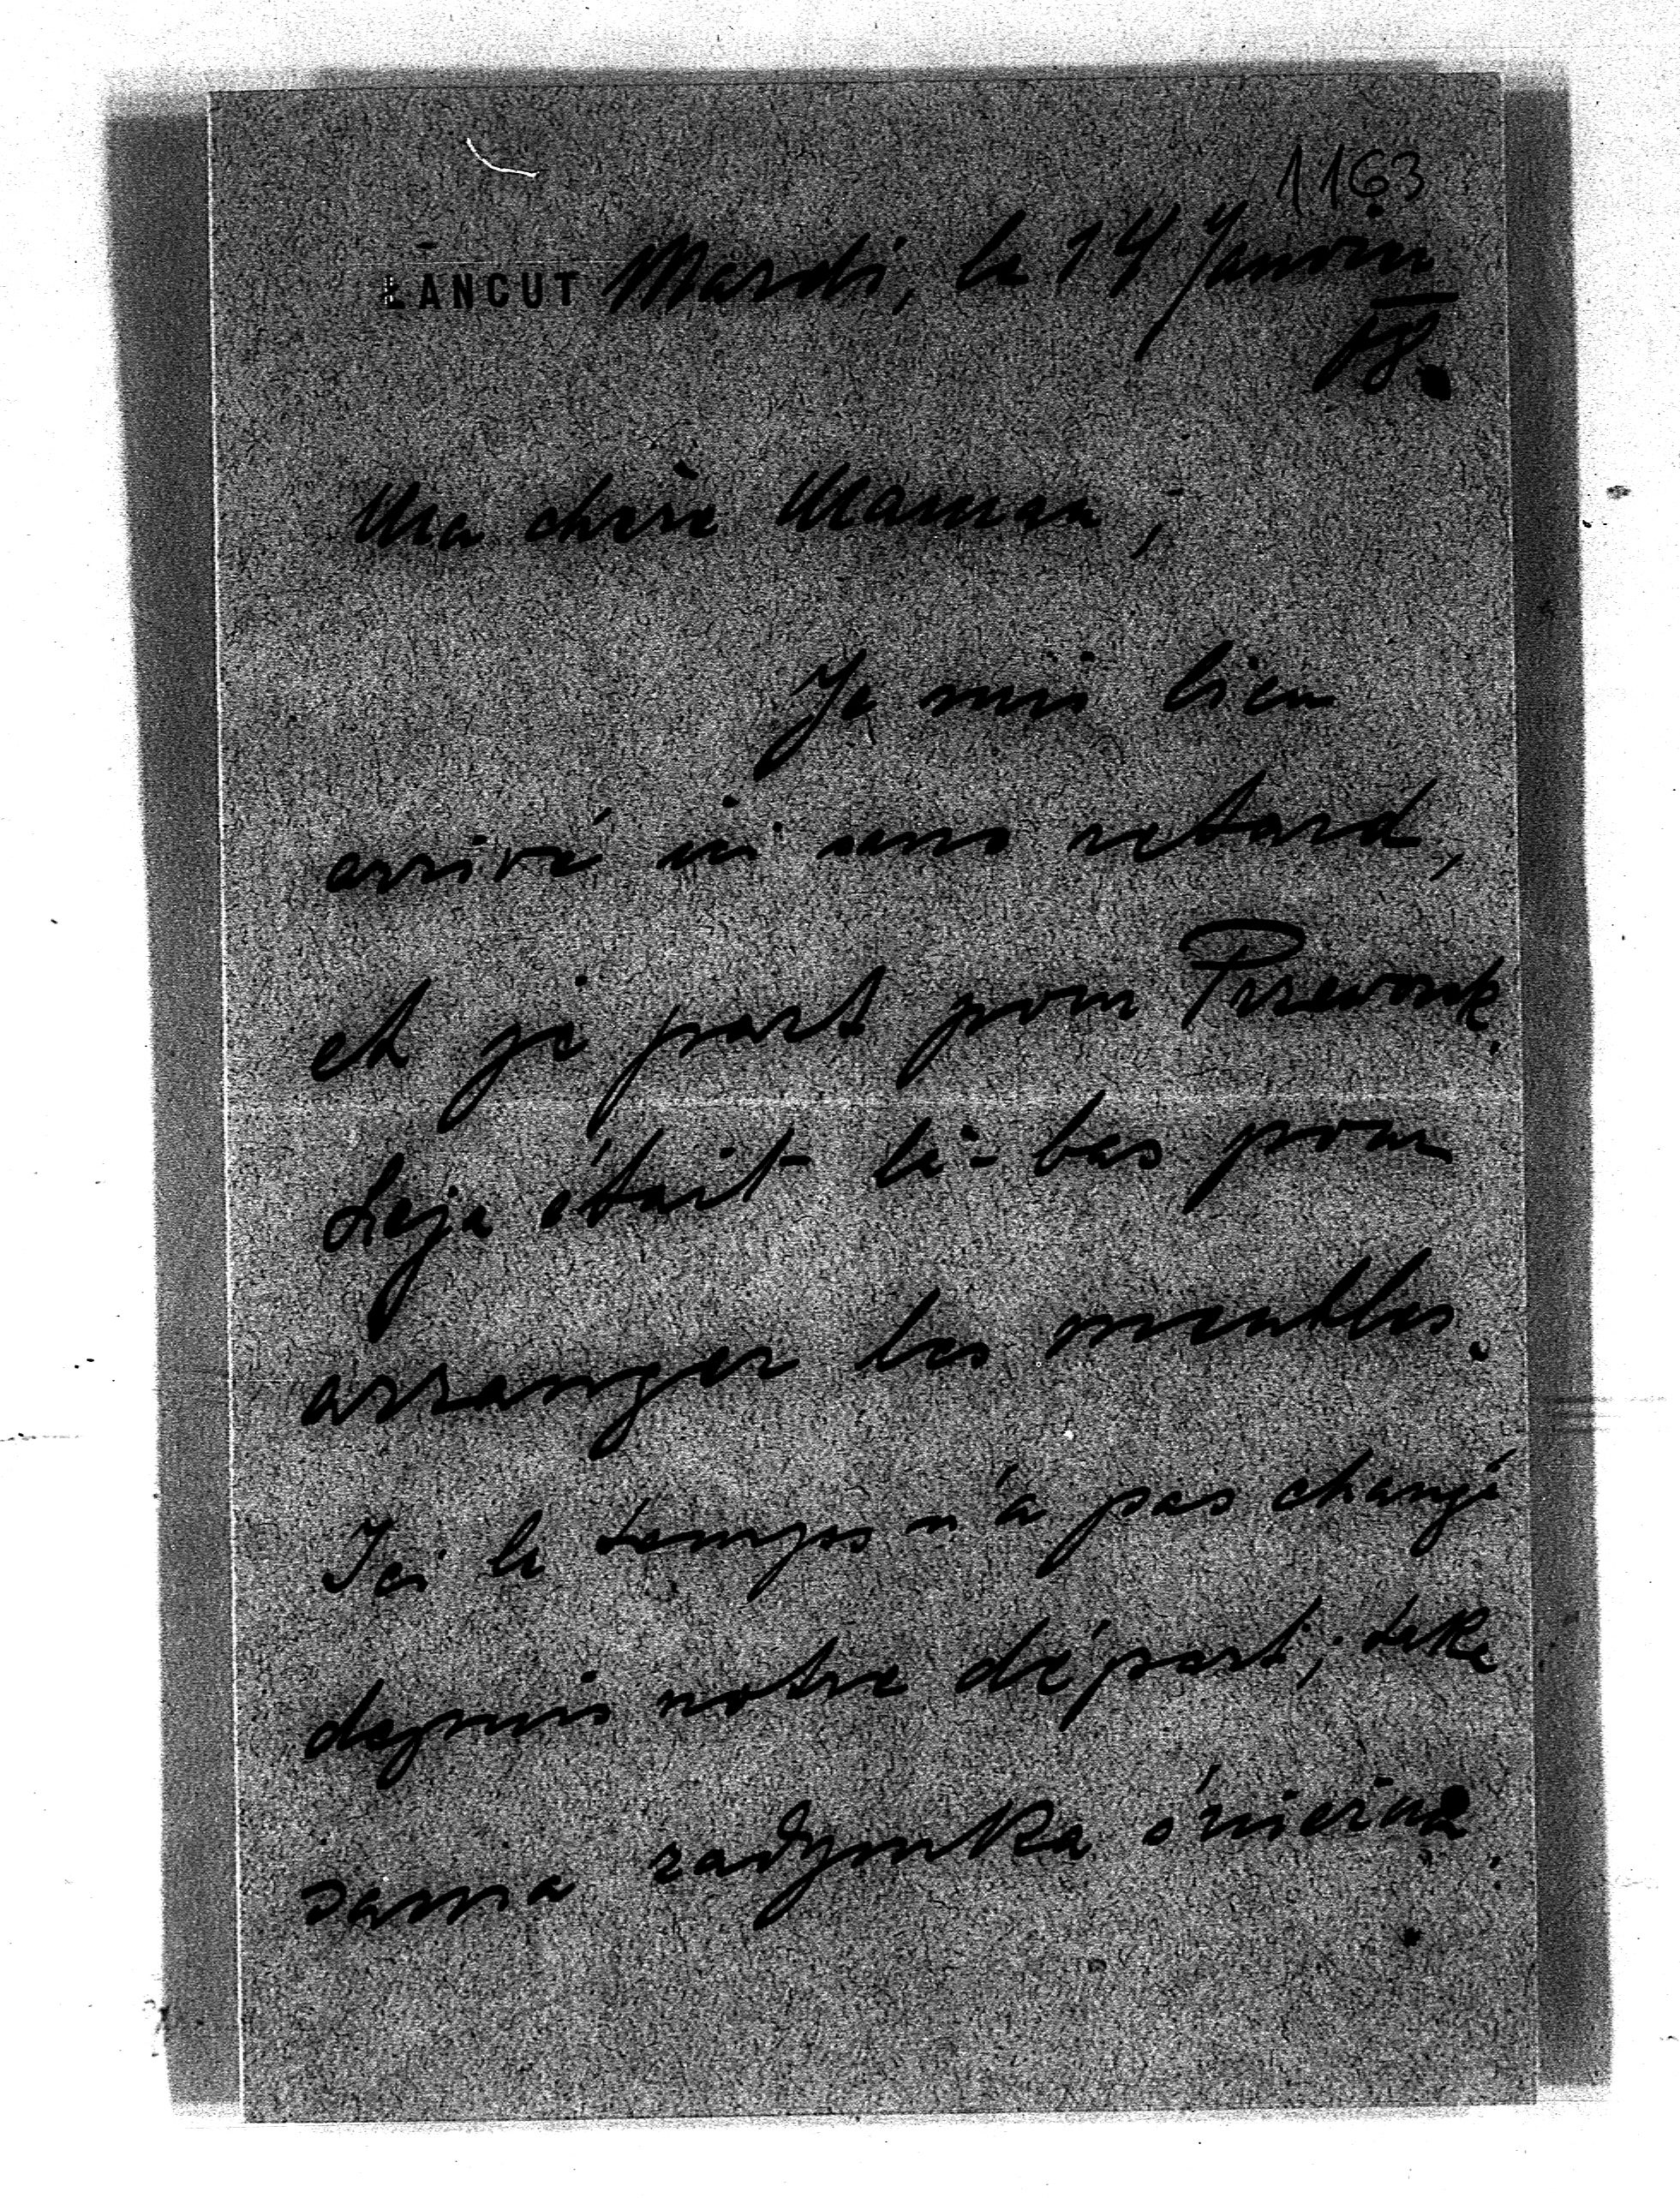 1163
ŁAŃCUT Mardi, le 14 Janvier
18.
Ma chère Maman,
Je suis bien
arrivé ici sans retard,
et je part pour Przeworsk.
était là-bas pour
arranger les meubles.
Ici le temps n'a pas changé
depuis notre départ; taka
sama zadymka śnieżna.